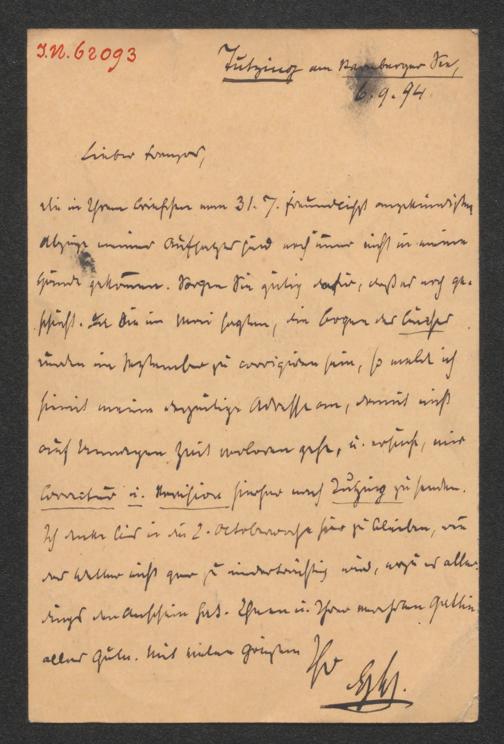 J.N. 62093
Tutzing am Starnberger See,
6.9.94.
Lieber Franzos,
die in Ihrem Briefchen vom 31.7. freundlichst angekündigten
Abzüge meines Aufsatzes sind noch immer nicht in meine
Hände gekommen. Sorgen Sie gütig dafür, daß es noch ge-
schieht. Da Sie im Mai sagten, die Bogen des Buches
würden im September zu corrigiren sein, so melde ich
hiemit meine derzeitige Adresse an, damit nicht
auf Umwegen Zeit verloren gehe, u. ersuche, mir
Correctur u. Revision hierher nach Tutzing zu senden.
Ich denke bis in die 2. Octoberwoche hier zu bleiben, wenn
das Wetter nicht gar zu niederträchtig wird, wozu es aller-
dings den Anschein hat. Ihnen u. Ihrer verehrten Gattin
alles Gute. Mit vielen Grüßen
Ihr